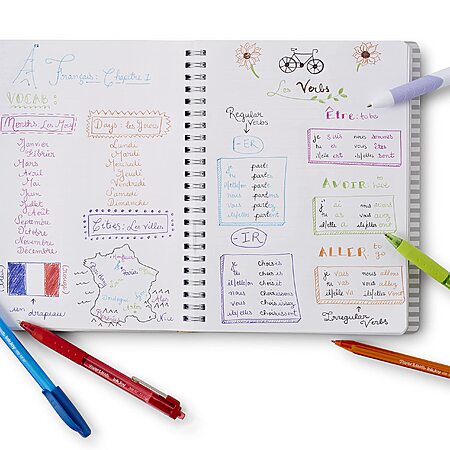 Français: Chapitre 1
VOCAB:
Months: Les Mois
Janvier
Février
Mars
Avril
Mai
Juin
Juillet
Août
Septembre
Octobre
Novembre
Decembre
un drapeau
Days: les Jours
Lundi
Mardi
Mercredi
Jeudi
Vendredi
Samedi
Dimanche
Cities: Les Villes
Les Verbs
Regular Verbs
-ER
je parle
tu parles
il/elle/on parle
nous parlons
vous parlez
ils/elles parlent
-IR
je choisis
tu choisis
il/elle/on choisit
nous choisissons
vous choisissez
ils/elles choisissent
Être: to be
je suis nous sommes
tu es vous êtes
il/elle est ils/elles sont
AVOIR to have
j' ai nous avons
tu as vous avez
il/elle a ils/elles ont
ALLER to go
je vais nous allons
tu vas vous allez
il/elle va ils/elles vont
Irregular Verbs